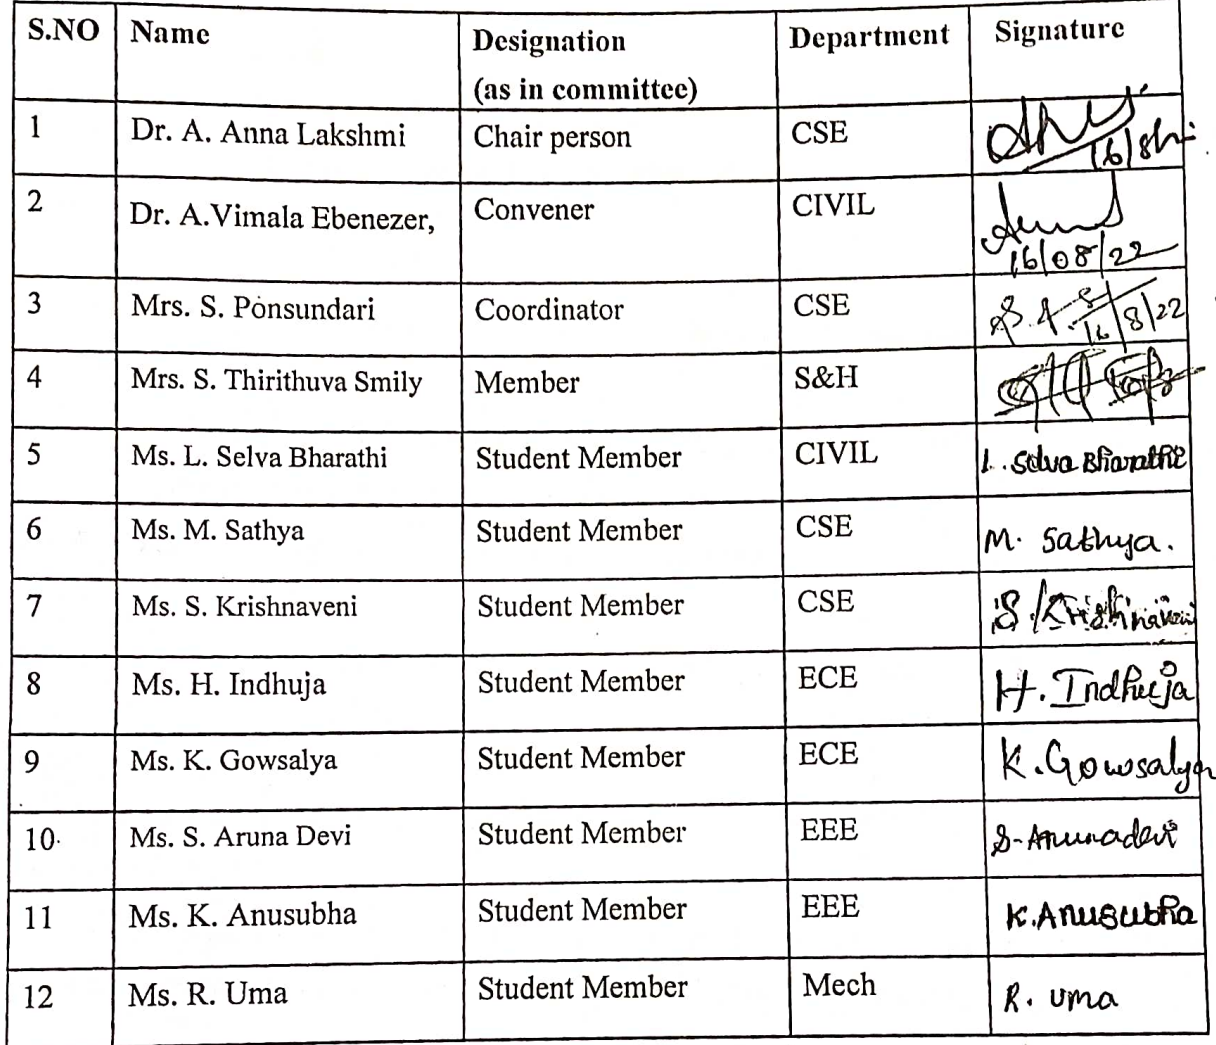 S.NO Name Designation Department Signature
(as in committee)
1 Dr. A. Anna Lakshmi Chair person CSE
2 Dr. A.Vimala Ebenezer, Convener CIVIL
16/08/22
3 Mrs. S. Ponsundari Coordinator CSE
16/8/22
4 Mrs. S. Thirithuva Smily Member S&H
5 Ms. L. Selva Bharathi Student Member CIVIL L. Selva Bharathi
6 Ms. M. Sathya Student Member CSE M. Sathya.
7 Ms. S. Krishnaveni Student Member CSE S. Krishnaveni
8 Ms. H. Indhuja Student Member ECE H. Indhuja
9 Ms. K. Gowsalya Student Member ECE K. Gowsalya
10 Ms. S. Aruna Devi Student Member EEE S. Arunadevi
11 Ms. K. Anusubha Student Member EEE K. Anusubha
12 Ms. R. Uma Student Member Mech R. Uma